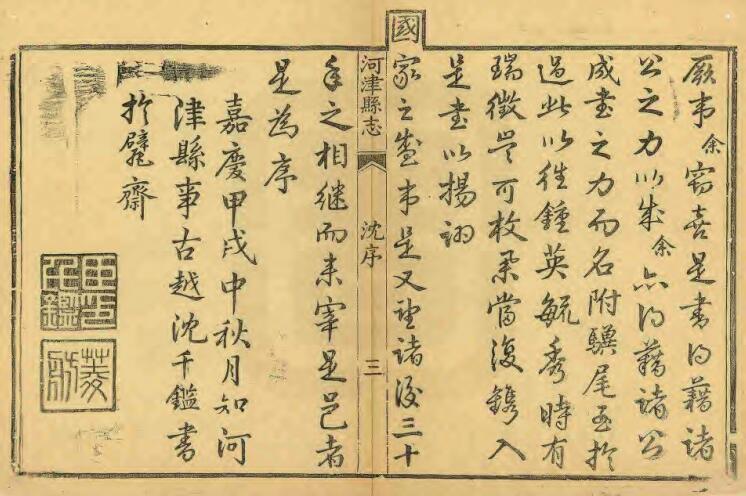 厥事余窃喜是書得藉諸
公之力以成余亦得藉諸公
成書之力而名附驥尾至於
過此以往鍾英毓秀時有
瑞徵豈可枚舉當復鐫入
是書以揚詡
國家之盛事是又望諸後三十
年之相継而来宰是邑者
是為序
嘉慶甲戌中秋月知河
津縣事古越沈千鑑書
於躄齋
河津縣志
沈序
三